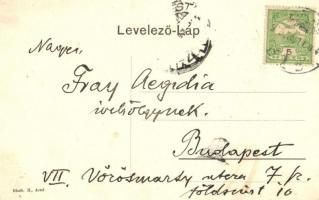 Levelező-Lap
Nagys.
Fray Aegidia
úrhölgynek.
Budapest
VII. Vörösmarty utcza 7 sz.
földszint 10